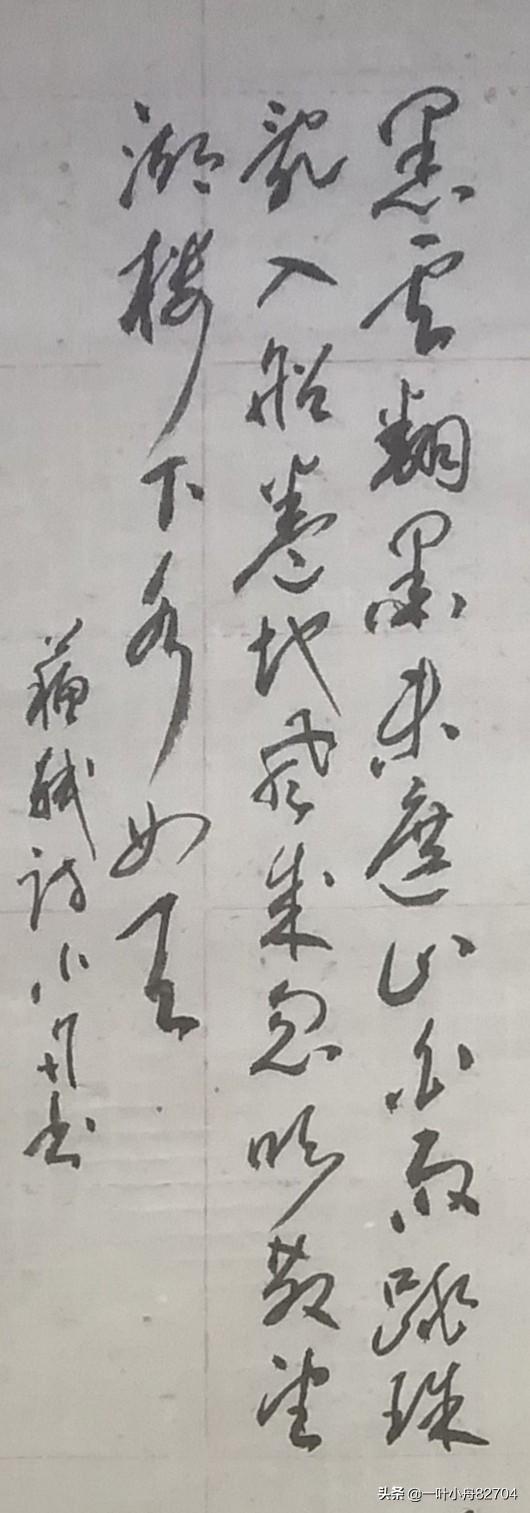 黑云翻墨未遮山白雨跳珠
亂入船卷地风来忽吹散望
湖楼下水如天
蘇轼诗小舟书
头条 @一叶小舟82704